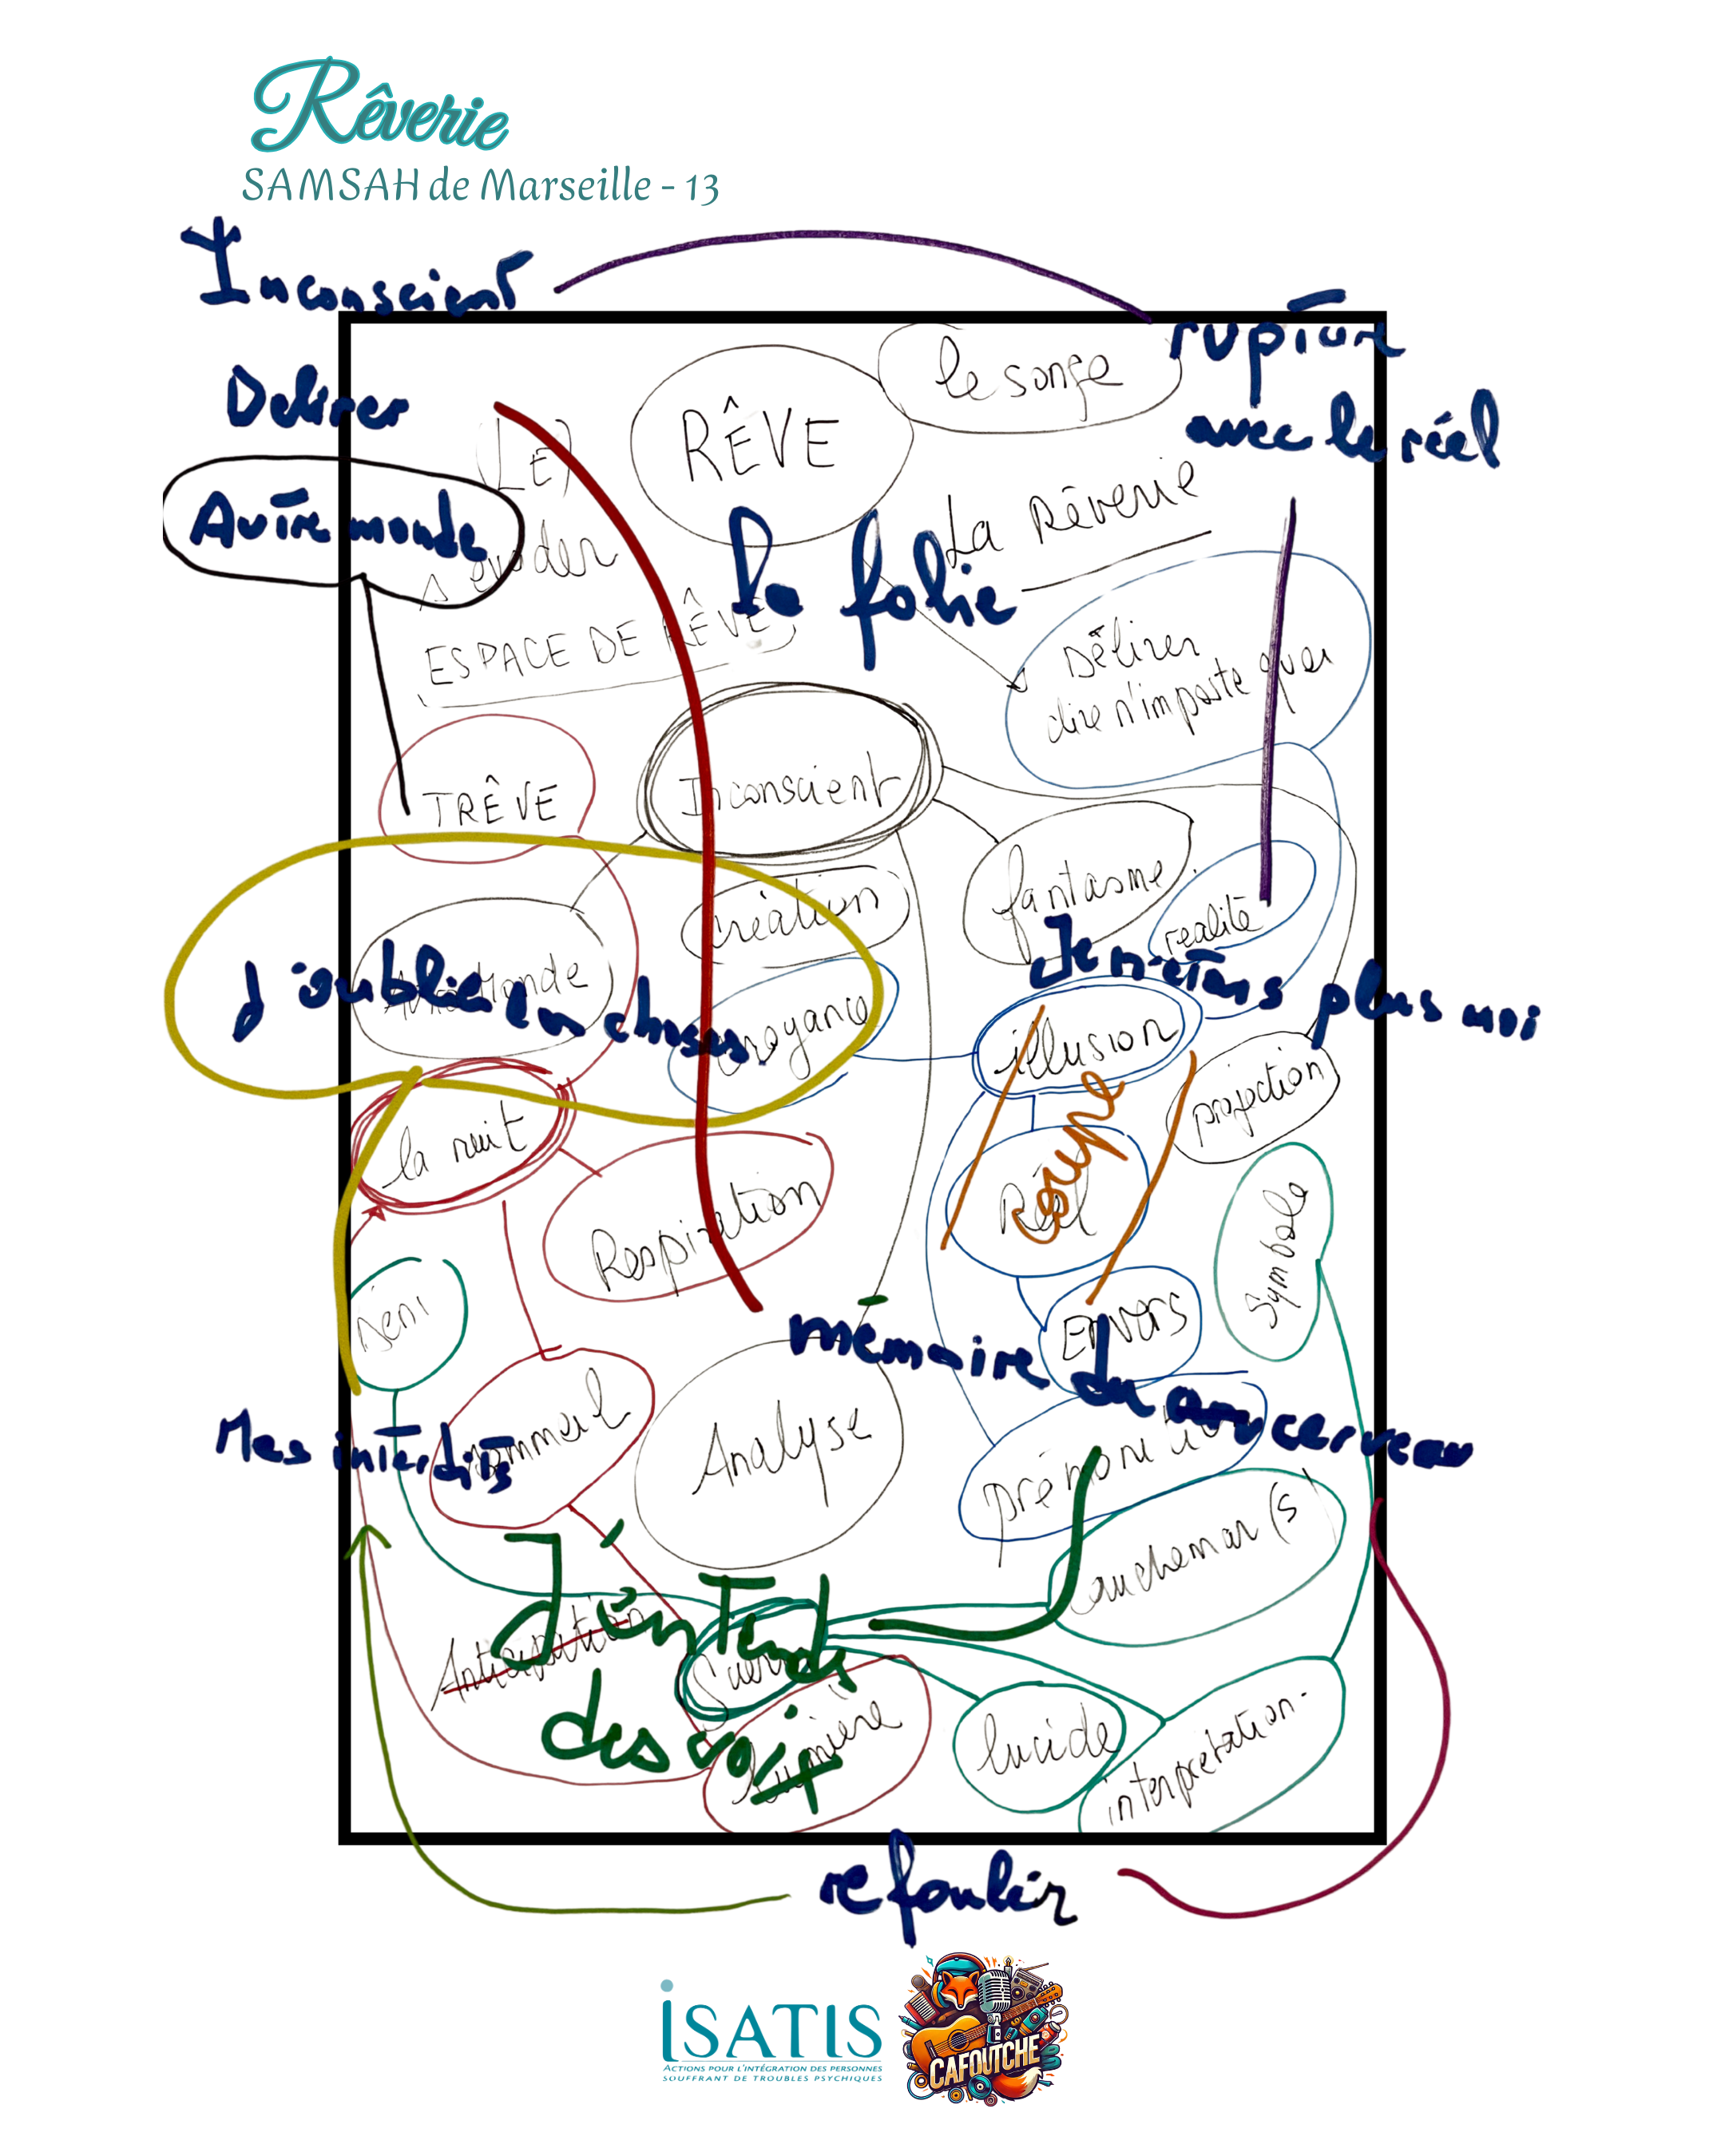 Rêverie
SAMSAH de Marseille - 13
Inconscient
rupture
avec le réel
Delirer
le songe
RÊVE
(LE)
La Rêverie
Autre monde
la folie
ESPACE DE RÊVE
Délirer
dire n'importe quoi
TRÊVE
Inconscient
fantasme
création
réalité
Je n'étais plus moi
J'oublie les choses
croyance
illusion
projection
la nuit
Rouge
Réel
Respiration
Symbole
Déni
ENVERS
mémoire du cerveau
Mes interdits
Sommeil
Analyse
prémonition
cauchemar(s)
J'entends
des voix
Anticipation
Lumière
lucide
interprétation
refouler
iSATIS
ACTIONS POUR L'INTÉGRATION DES PERSONNES
SOUFFRANT DE TROUBLES PSYCHIQUES
CAFOUTCHE